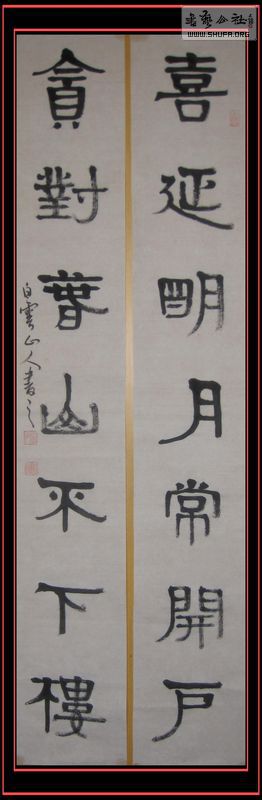 喜延明月常開戶
貪對春山不下樓
白雲山人書之
書藝公社
WWW.SHUFA.ORG